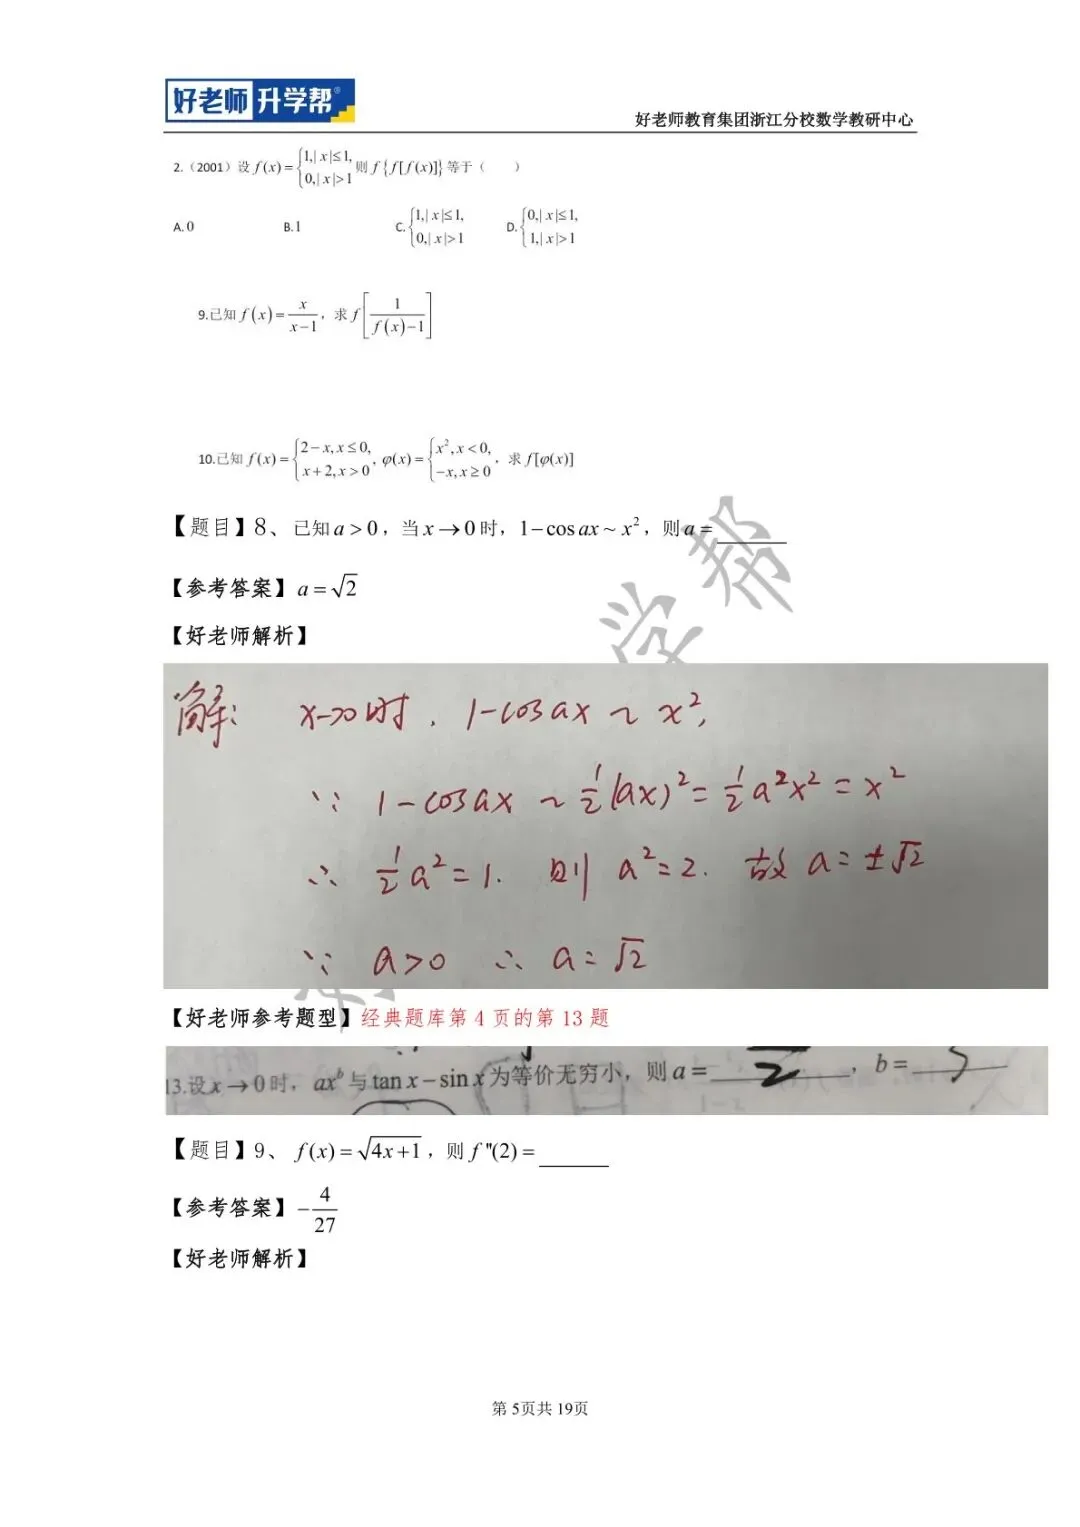 好老师 升学帮
好老师教育集团浙江分校数学教研中心
2.（2001）设 f(x)={1,|x|≤1, 0,|x|>1 则 f{f[f(x)]} 等于（ ）
A. 0 B. 1 C. {1,|x|≤1, 0,|x|>1 D. {0,|x|≤1, 1,|x|>1
9.已知 f(x)=x/(x-1)，求 f[1/(f(x)-1)]
10.已知 f(x)={2-x,x≤0, x+2,x>0，φ(x)={x²,x<0, -x,x≥0，求 f[φ(x)]
【题目】8、已知 a>0，当 x→0 时，1-cos ax ~ x²，则 a=______
【参考答案】a=√2
【好老师解析】
学帮
解: x→0时, 1-cosax ~ x²,
∵ 1-cosax ~ ½(ax)²=½a²x²=x²
∴ ½a²=1. 则 a²=2. 故 a=±√2
∵ a>0 ∴ a=√2
【好老师参考题型】经典题库第 4 页的第 13 题
13.设 x→0 时，ax^b 与 tan x-sin x 为等价无穷小，则 a=______，b=______
【题目】9、f(x)=√(4x+1)，则 f"(2)=______
【参考答案】-4/27
【好老师解析】
第 5页共 19页